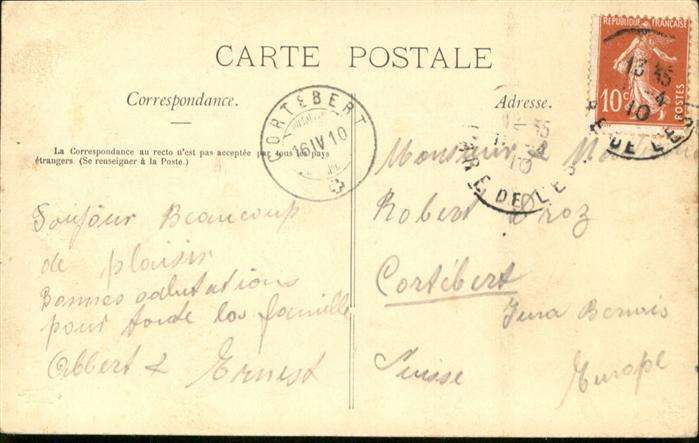 CARTE POSTALE
Correspondance.
La Correspondance au recto n'est pas acceptée par tous les pays
étrangers (Se renseigner à la Poste.)
Toujour Beaucoup
de plaisir
Bonnes salutations
pour toute la famille
Albert & Ernest
CORTÉBERT
16 IV 10
RÉPUBLIQUE FRANÇAISE
10c
POSTES
13 45
-4
10
DE LE
Adresse.
10
E DE LES
Monsieur &
Robert Droz
Cortébert
Jura Bernois
Suisse
Europe